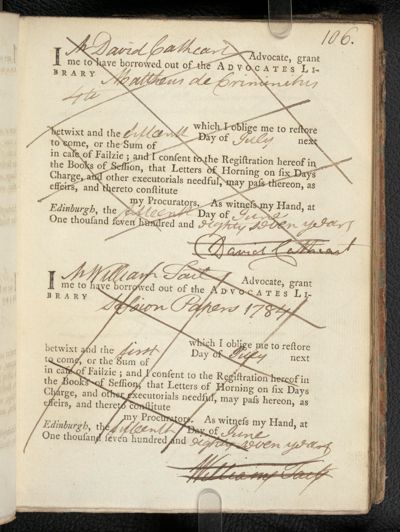 106.
I Mr David Cathcart Advocate, grant
me to have borrowed out of the ADVOCATES LI-
BRARY Matthæus de Criminibus
4to
which I oblige me to restore
betwixt and the fifteenth Day of July next
to come, or the Sum of
in case of Failzie ; and I consent to the Registration hereof in
the Books of Session, that Letters of Horning on six Days
Charge, and other executorials needful, may pass thereon, as
effeirs, and thereto constitute
my Procurators. As witness my Hand, at
Edinburgh, the fifteenth Day of June
One thousand seven hundred and eighty seven years
David Cathcart
I Mr William Tait Advocate, grant
me to have borrowed out of the ADVOCATES LI-
BRARY Session Papers 1784
which I oblige me to restore
betwixt and the first Day of July next
to come, or the Sum of
in case of Failzie ; and I consent to the Registration hereof in
the Books of Session, that Letters of Horning on six Days
Charge, and other executorials needful, may pass hereon, as
effeirs, and thereto constitute
my Procurators. As witness my Hand, at
Edinburgh, the fifteenth Day of June
One thousand seven hundred and eighty seven years
William Tait